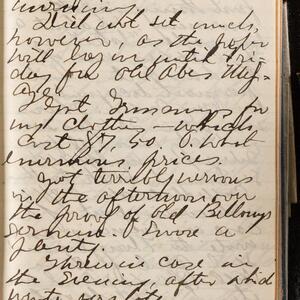 morning.
Did not set much,
however, as the paper
will lay in until Fri-
day for Old Abes Mess-
age.
Sent Jennings for
my clothes — which
cost $7,50. O. what
enormous prices.
Got terribly nervous
in the afternoon over
the proof of old Bellows
sermon. Swore a
plenty.
Threw in case in
the evening, after which